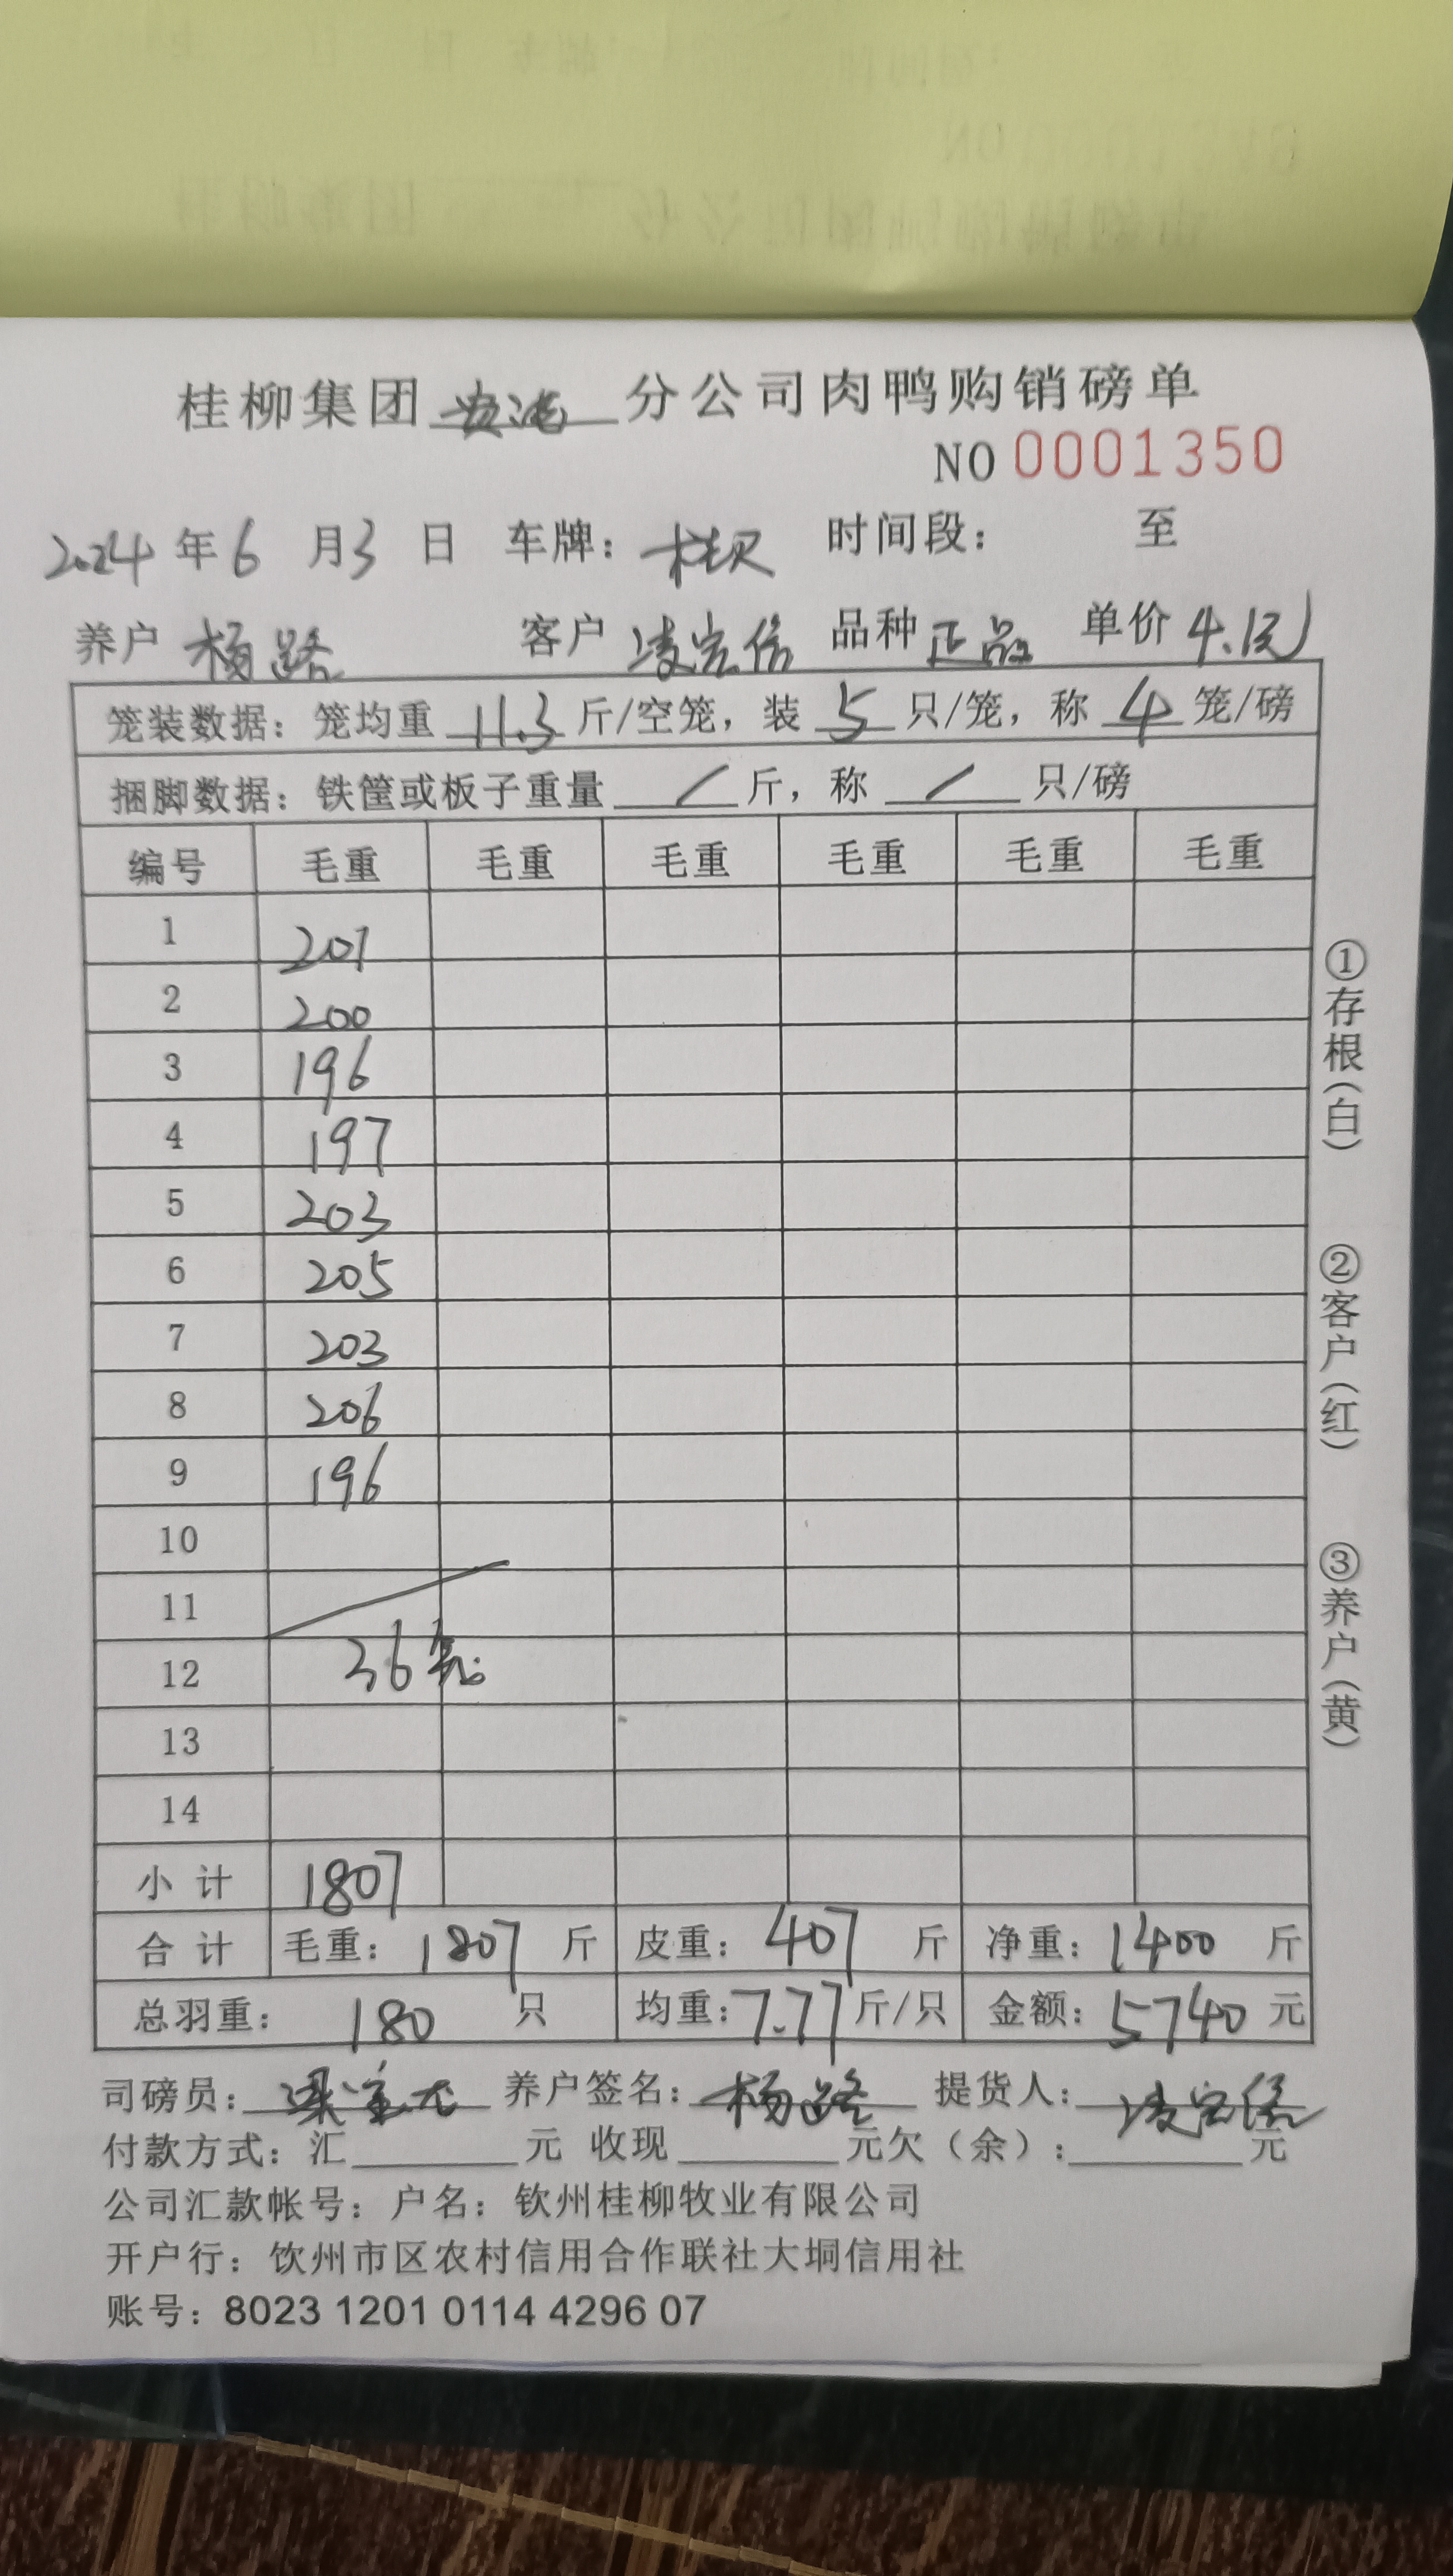 桂柳集团 分公司肉鸭购销磅单
NO 0001350
2024 年 6 月 3 日 车牌: 时间段: 至
养户 杨路 客户 凌宏信 品种 正品 单价 4.1元
笼装数据: 笼均重 11.3 斤/空笼, 装 5 只/笼, 称 4 笼/磅
捆脚数据: 铁筐或板子重量 / 斤, 称 / 只/磅
编号 毛重 毛重 毛重 毛重 毛重 毛重
1 201
2 200
3 196
4 197
5 203
6 205
7 203
8 206
9 196
10
11
12 36笼
13
14
小计 1807
合计 毛重: 1807 斤 皮重: 407 斤 净重: 1400 斤
总羽重: 180 只 均重: 7.77 斤/只 金额: 5740 元
司磅员: 养户签名: 杨路 提货人: 凌宏信
付款方式: 汇 元 收现 元欠(余): 元
公司汇款帐号: 户名: 钦州桂柳牧业有限公司
开户行: 饮州市区农村信用合作联社大垌信用社
账号: 8023 1201 0114 4296 07
①存根(白)
②客户(红)
③养户(黄)